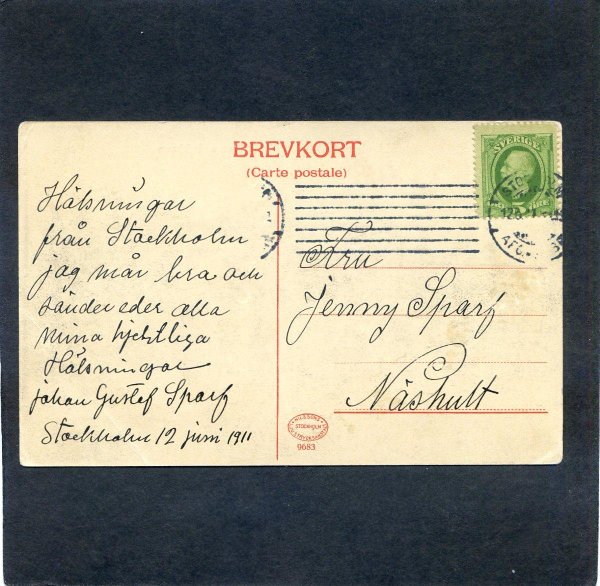 BREVKORT
(Carte postale)
SVERIGE
Hälsningar
från Stockholm
jag mår bra och
sänder eder alla
mina hjertliga
Hälsningar
johan Gustaf Sparf
Stockholm 12 juni 1911
Fru
Jenny Sparf
Näshult
STOCKHOLM
9683